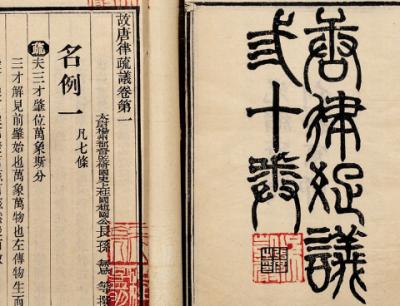 唐律疏議
弎十卷
故唐律疏議卷第一
太尉揚州都督監修國史上柱國趙國公長孫無忌等撰
名例一 凡七條
疏夫三才肇位萬象斯分
三才解見前肇始也萬象萬物也左傳物生而